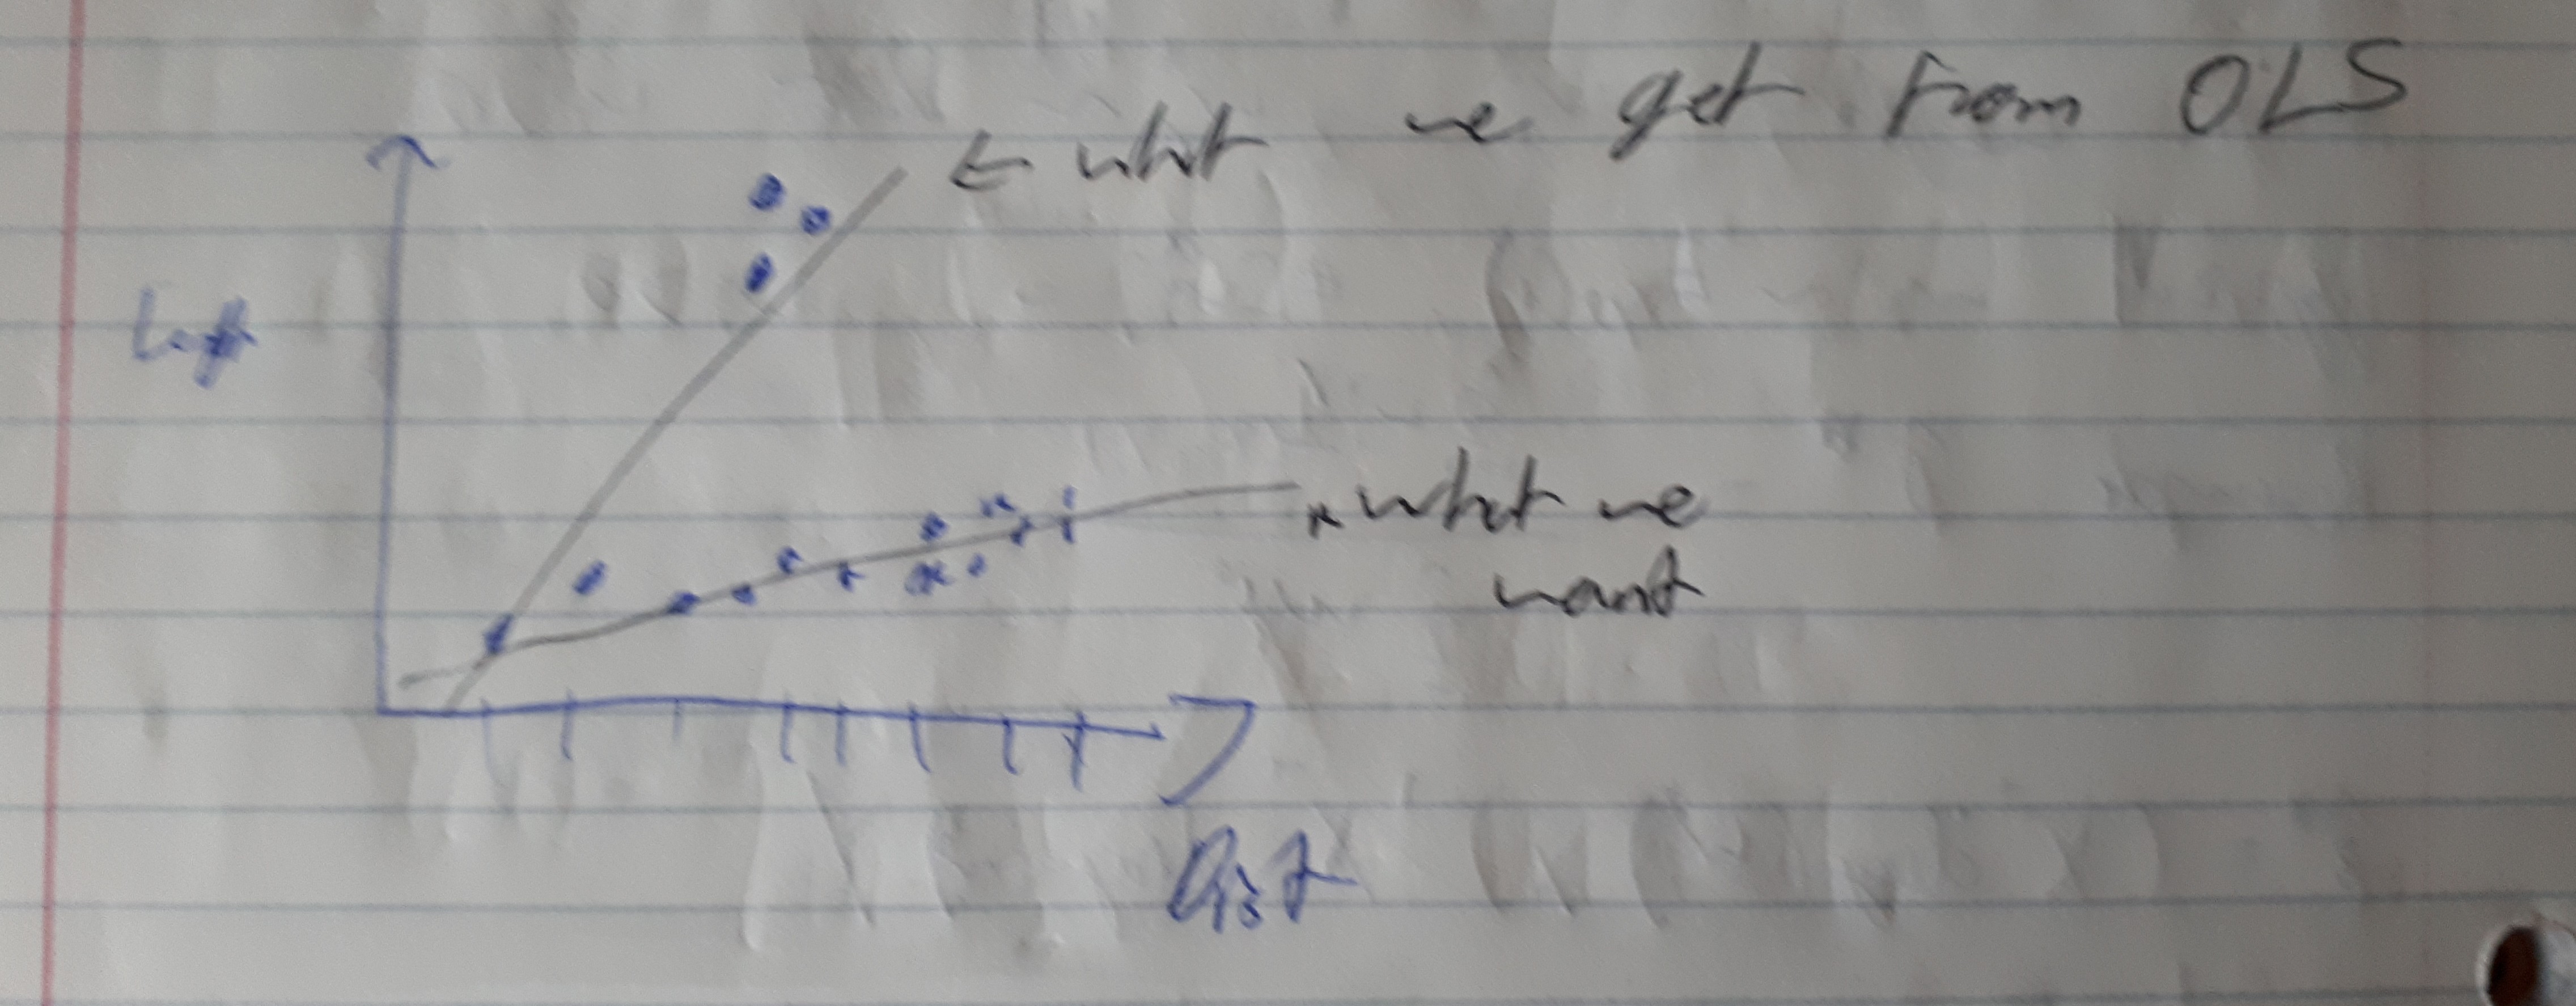 ← what we get from OLS
what we
want
Dist